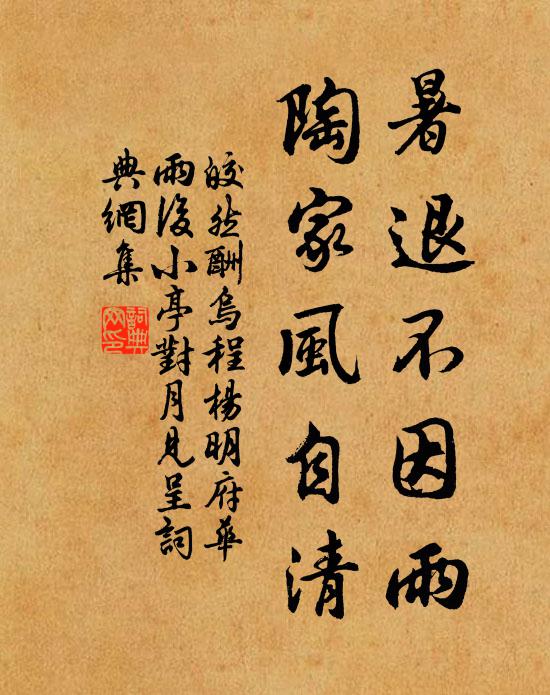 暑退不因雨
陶家風自清
皎然酬烏程楊明府華
雨後小亭對月見呈詞
典網集
詞典網印